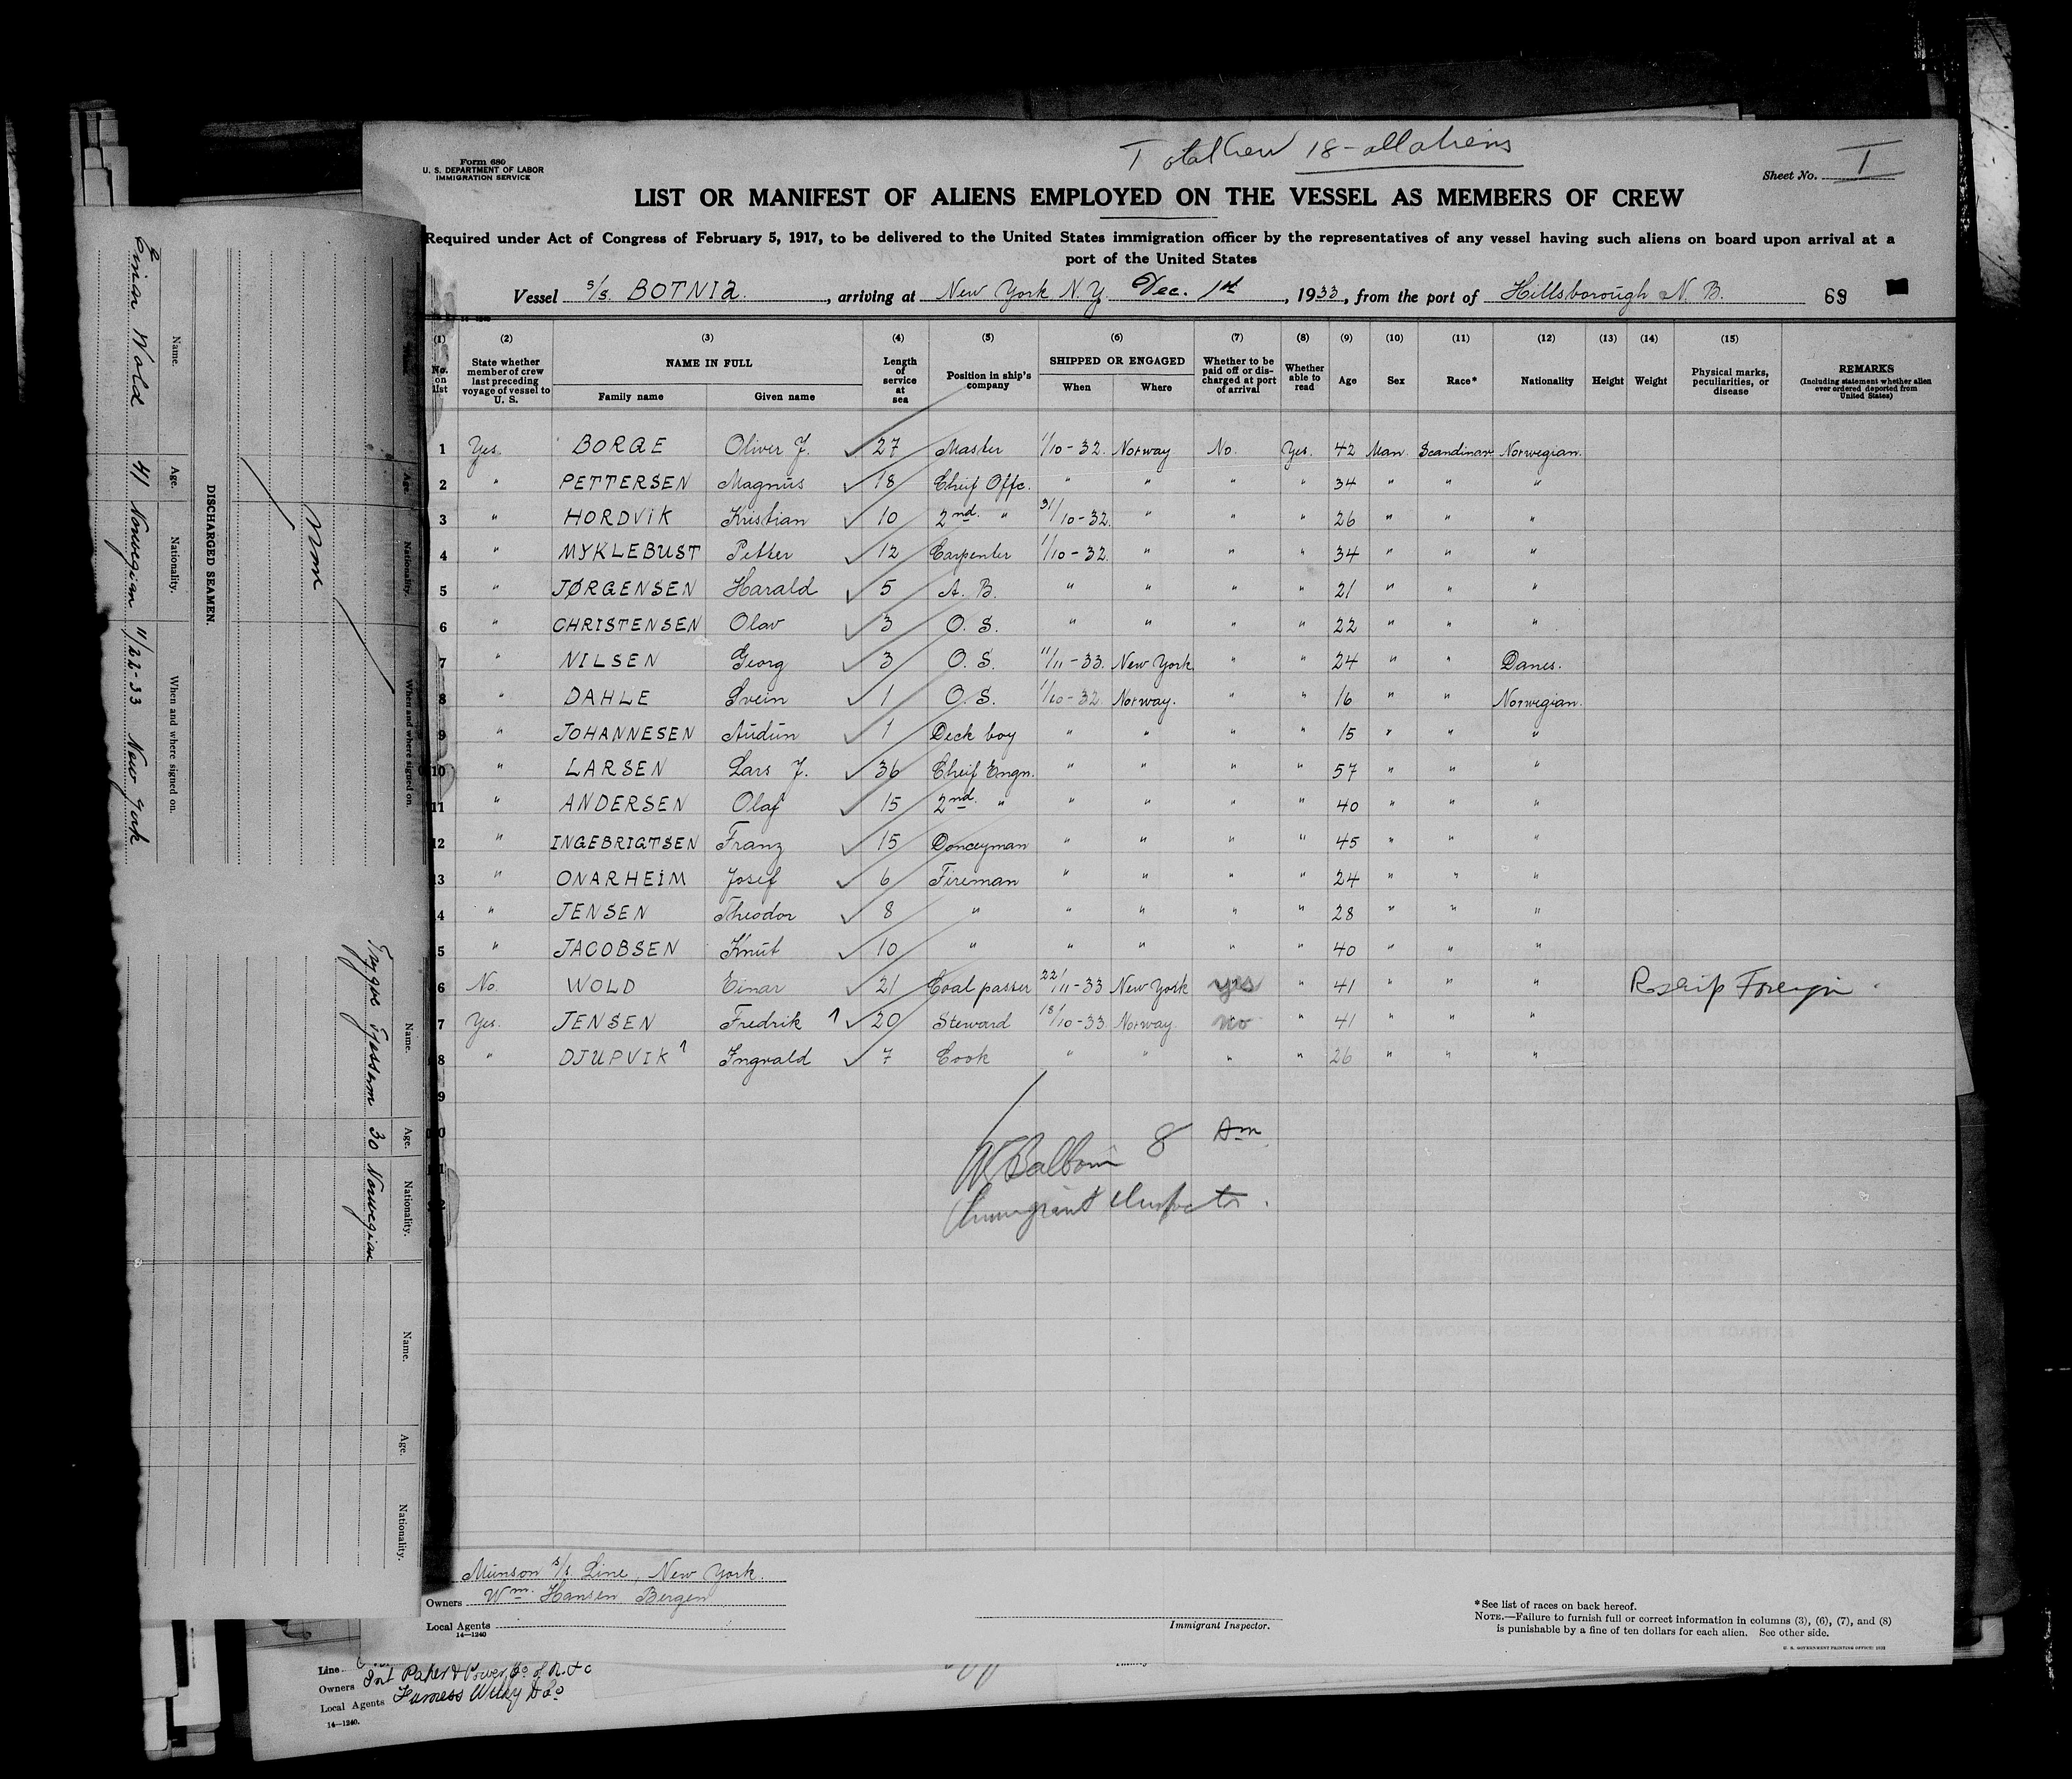 Total Crew 18 - all aliens
Form 680
U. S. DEPARTMENT OF LABOR
IMMIGRATION SERVICE
Sheet No. I
LIST OR MANIFEST OF ALIENS EMPLOYED ON THE VESSEL AS MEMBERS OF CREW
Required under Act of Congress of February 5, 1917, to be delivered to the United States immigration officer by the representatives of any vessel having such aliens on board upon arrival at a
port of the United States
Vessel s/s. BOTNIA., arriving at New York N.Y. Dec. 1st, 1933, from the port of Hillsborough N. B.
(1) (2) (3) (4) (5) (6) (7) (8) (9) (10) (11) (12) (13) (14) (15)
No. on list
State whether member of crew last preceding voyage of vessel to U. S.
NAME IN FULL
Family name Given name
Length of service at sea
Position in ship's company
SHIPPED OR ENGAGED
When Where
Whether to be paid off or discharged at port of arrival
Whether able to read
Age Sex Race* Nationality Height Weight
Physical marks, peculiarities, or disease
REMARKS
(Including statement whether alien ever ordered deported from United States)
1 Yes. BORGE Oliver J. 27 Master 1/10-32. Norway No. Yes. 42 Man. Scandinav Norwegian.
2 " PETTERSEN Magnus 18 Cheif Offc. " " " " 34 " " "
3 " HORDVIK Kristian 10 2nd. " 31/10-32. " " " 26 " " "
4 " MYKLEBUST Petter 12 Carpenter 1/10-32. " " " 34 " " "
5 " JØRGENSEN Harald 5 A. B. " " " " 21 " " "
6 " CHRISTENSEN Olav 3 O. S. " " " " 22 " " "
7 " NILSEN Georg 3 O. S. 11/11-33. New York " " 24 " " Danes.
8 " DAHLE Svein 1 O. S. 1/10-32 Norway. " " 16 " " Norwegian.
9 " JOHANNESEN Audun 1 Deck boy " " " " 15 " " "
10 " LARSEN Lars J. 36 Cheif Engn. " " " " 57 " " "
11 " ANDERSEN Olaf 15 2nd. " " " " " 40 " " "
12 " INGEBRIGTSEN Franz 15 Donceyman " " " " 45 " " "
13 " ONARHEIM Josef 6 Fireman " " " " 24 " " "
4 " JENSEN Theodor 8 " " " " " 28 " " "
5 " JACOBSEN Knut 10 " " " " " 40 " " "
6 No. WOLD Einar 21 Coal passer 22/11-33 New York yes " 41 " " " Reship Foreign
7 Yes. JENSEN Fredrik 20 Steward 18/10-33 Norway. no " 41 " " "
8 " DJUPVIK Ingvald 7 Cook " " " " 26 " " "
9
8 Am
Immigrant Inspector.
Munson s/s. Line, New York.
Owners Wm. Hansen Bergen
Local Agents
14—1240
Immigrant Inspector.
*See list of races on back hereof.
NOTE.—Failure to furnish full or correct information in columns (3), (6), (7), and (8)
is punishable by a fine of ten dollars for each alien. See other side.
U. S. GOVERNMENT PRINTING OFFICE: 1932
Line
Owners Int Paper & Power Co of
Local Agents Furness Withy & Co
14—1240.
Name. Age. Nationality. When and where signed on.
Einar Wold 41 Norwegian 11/22-33 New York
DISCHARGED SEAMEN.
Age. Nationality. When and where signed on.
Name. Age. Nationality.
Trygve 30 Norwegian
Name. Age. Nationality.